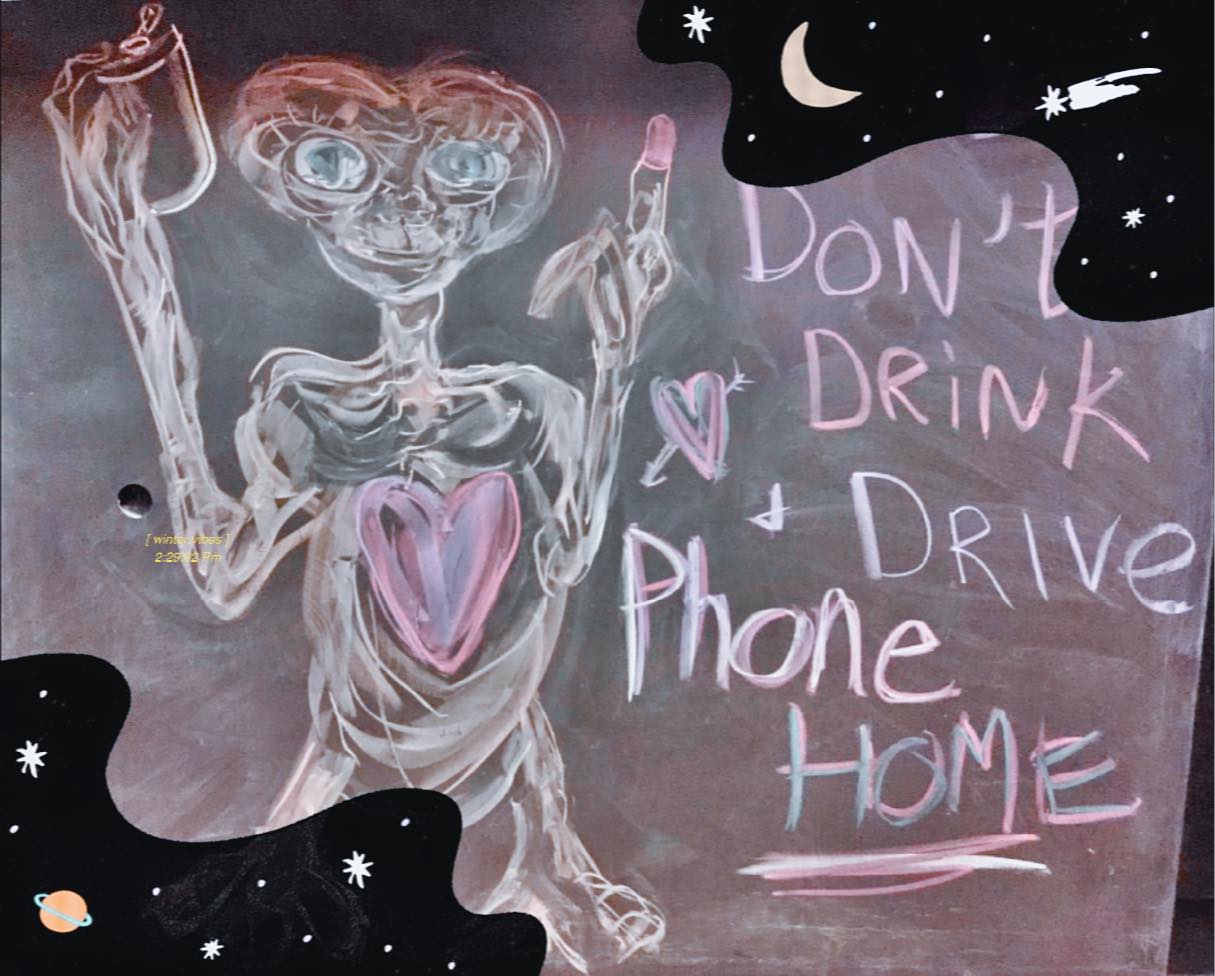 DON't
DRiNK
+ DRIVe
Phone
HOME
[ winter vibes ]
2:29:02 Pm